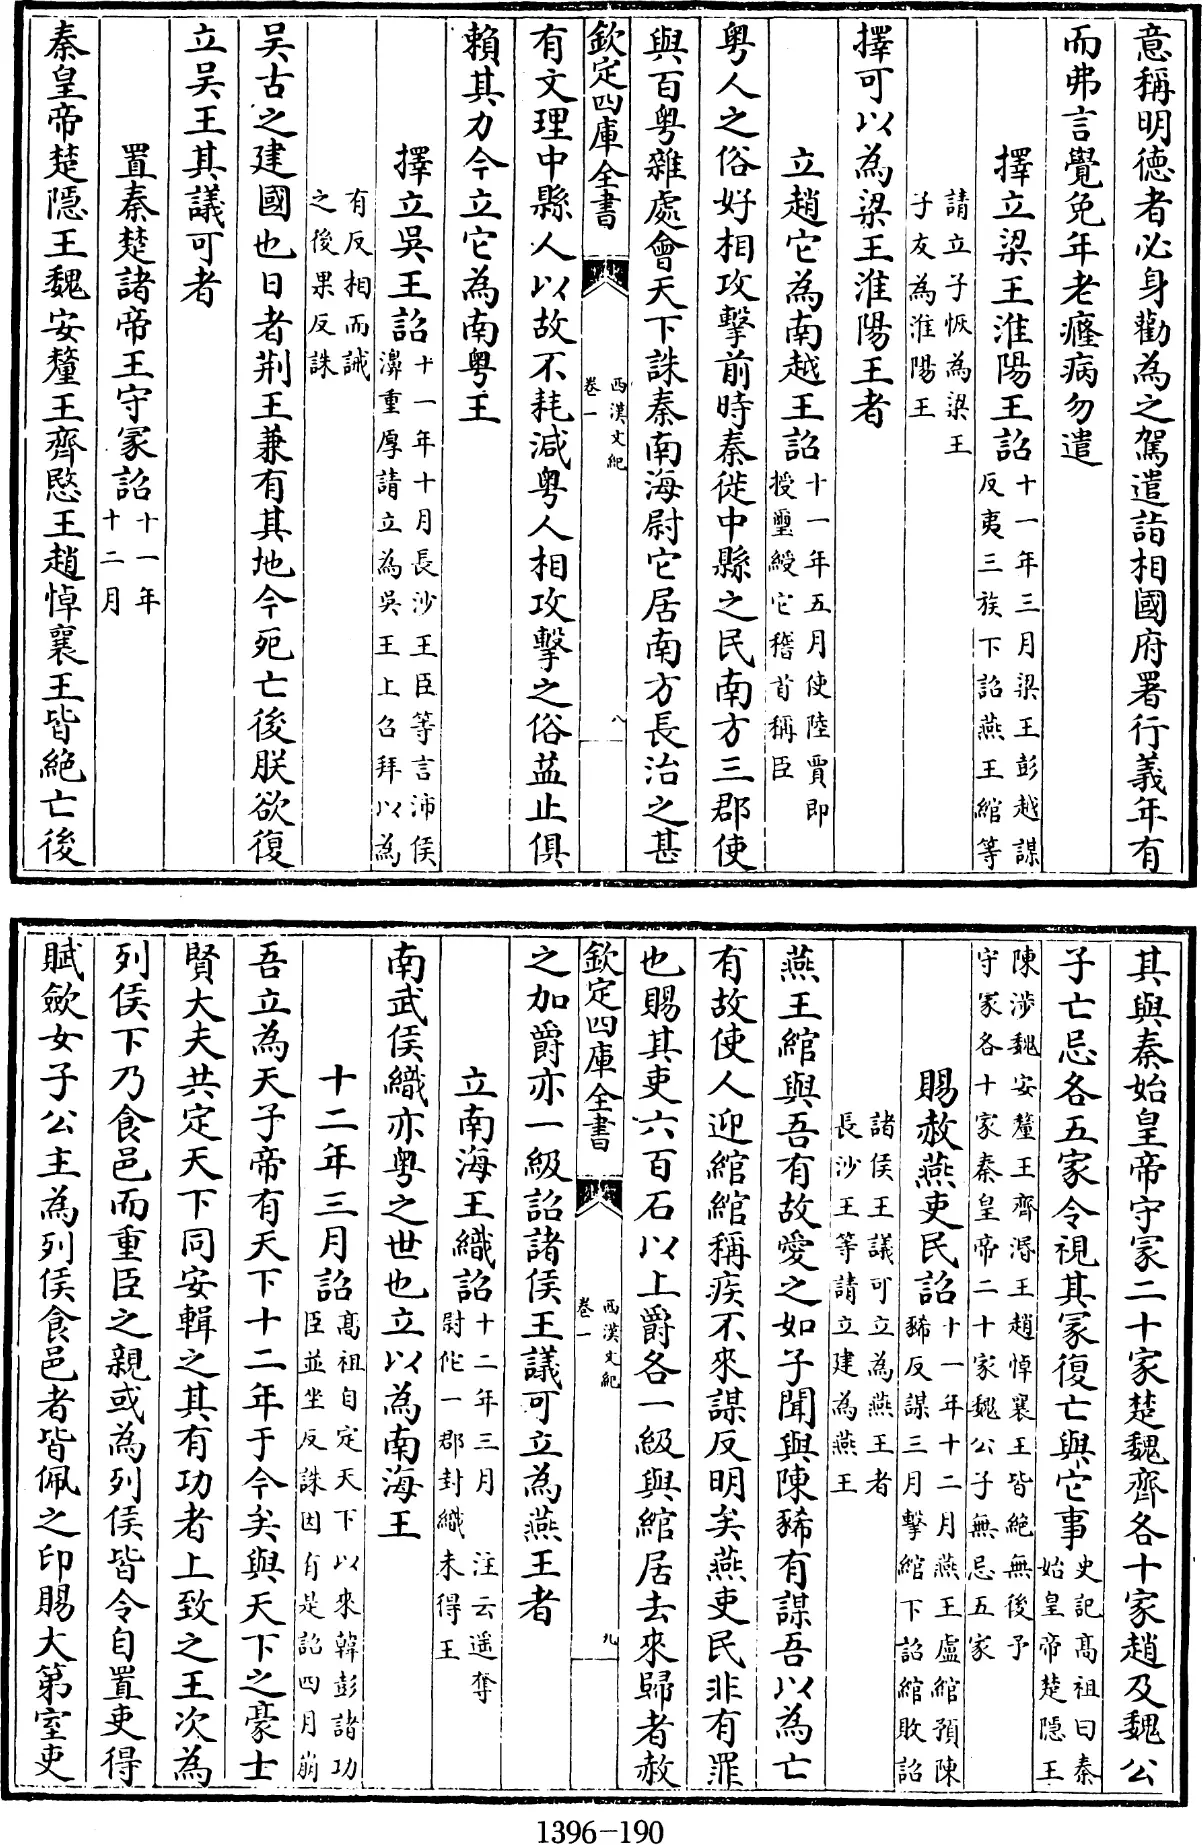 意稱明德者必身勸為之駕遣詣相國府署行義年有
而弗言覺免年老癃病勿遣
擇立梁王淮陽王詔十一年三月梁王彭越謀
反夷三族下詔燕王綰等
請立子恢為梁王
子友為淮陽王
擇可以為梁王淮陽王者
立趙它為南越王詔十一年五月使陸賈即
授璽綬它稽首稱臣
粤人之俗好相攻擊前時秦徙中縣之民南方三郡使
與百粤雜處會天下誅秦南海尉它居南方長治之甚
欽定四庫全書
西漢文紀
卷一
八
有文理中縣人以故不耗減粤人相攻擊之俗益止俱
賴其力今立它為南粤王
擇立吳王詔十一年十月長沙王臣等言沛侯
濞重厚請立為吳王上召拜以為
有反相而誡
之後果反誅
吴古之建國也日者荆王兼有其地今死亡後朕欲復
立吴王其議可者
置秦楚諸帝王守冢詔十一年
十二月
秦皇帝楚隱王魏安釐王齊愍王趙悼襄王皆絶亡後
其與秦始皇帝守冢二十家楚魏齊各十家趙及魏公
子亡忌各五家令視其冢復亡與它事史記髙祖曰秦
始皇帝楚隱王
陳涉魏安釐王齊湣王趙悼襄王皆絶無後予
守冢各十家秦皇帝二十家魏公子無忌五家
賜赦燕吏民詔十一年十二月燕王盧綰預陳
豨反謀三月擊綰下詔綰敗詔
諸侯王議可立為燕王者
長沙王等請立建為燕王
燕王綰與吾有故愛之如子聞與陳豨有謀吾以為亡
有故使人迎綰綰稱疾不來謀反明矣燕吏民非有罪
也賜其吏六百石以上爵各一級與綰居去來歸者赦
欽定四庫全書
西漢文紀
卷一
九
之加爵亦一級詔諸侯王議可立為燕王者
立南海王織詔十二年三月 注云遥奪
尉佗一郡封織未得王
南武侯織亦粤之世也立以為南海王
十二年三月詔髙祖自定天下以來韓彭諸功
臣並坐反誅因有是詔四月崩
吾立為天子帝有天下十二年于今矣與天下之豪士
賢大夫共定天下同安輯之其有功者上致之王次為
列侯下乃食邑而重臣之親或為列侯皆令自置吏得
賦歛女子公主為列侯食邑者皆佩之印賜大第室吏
1396-190